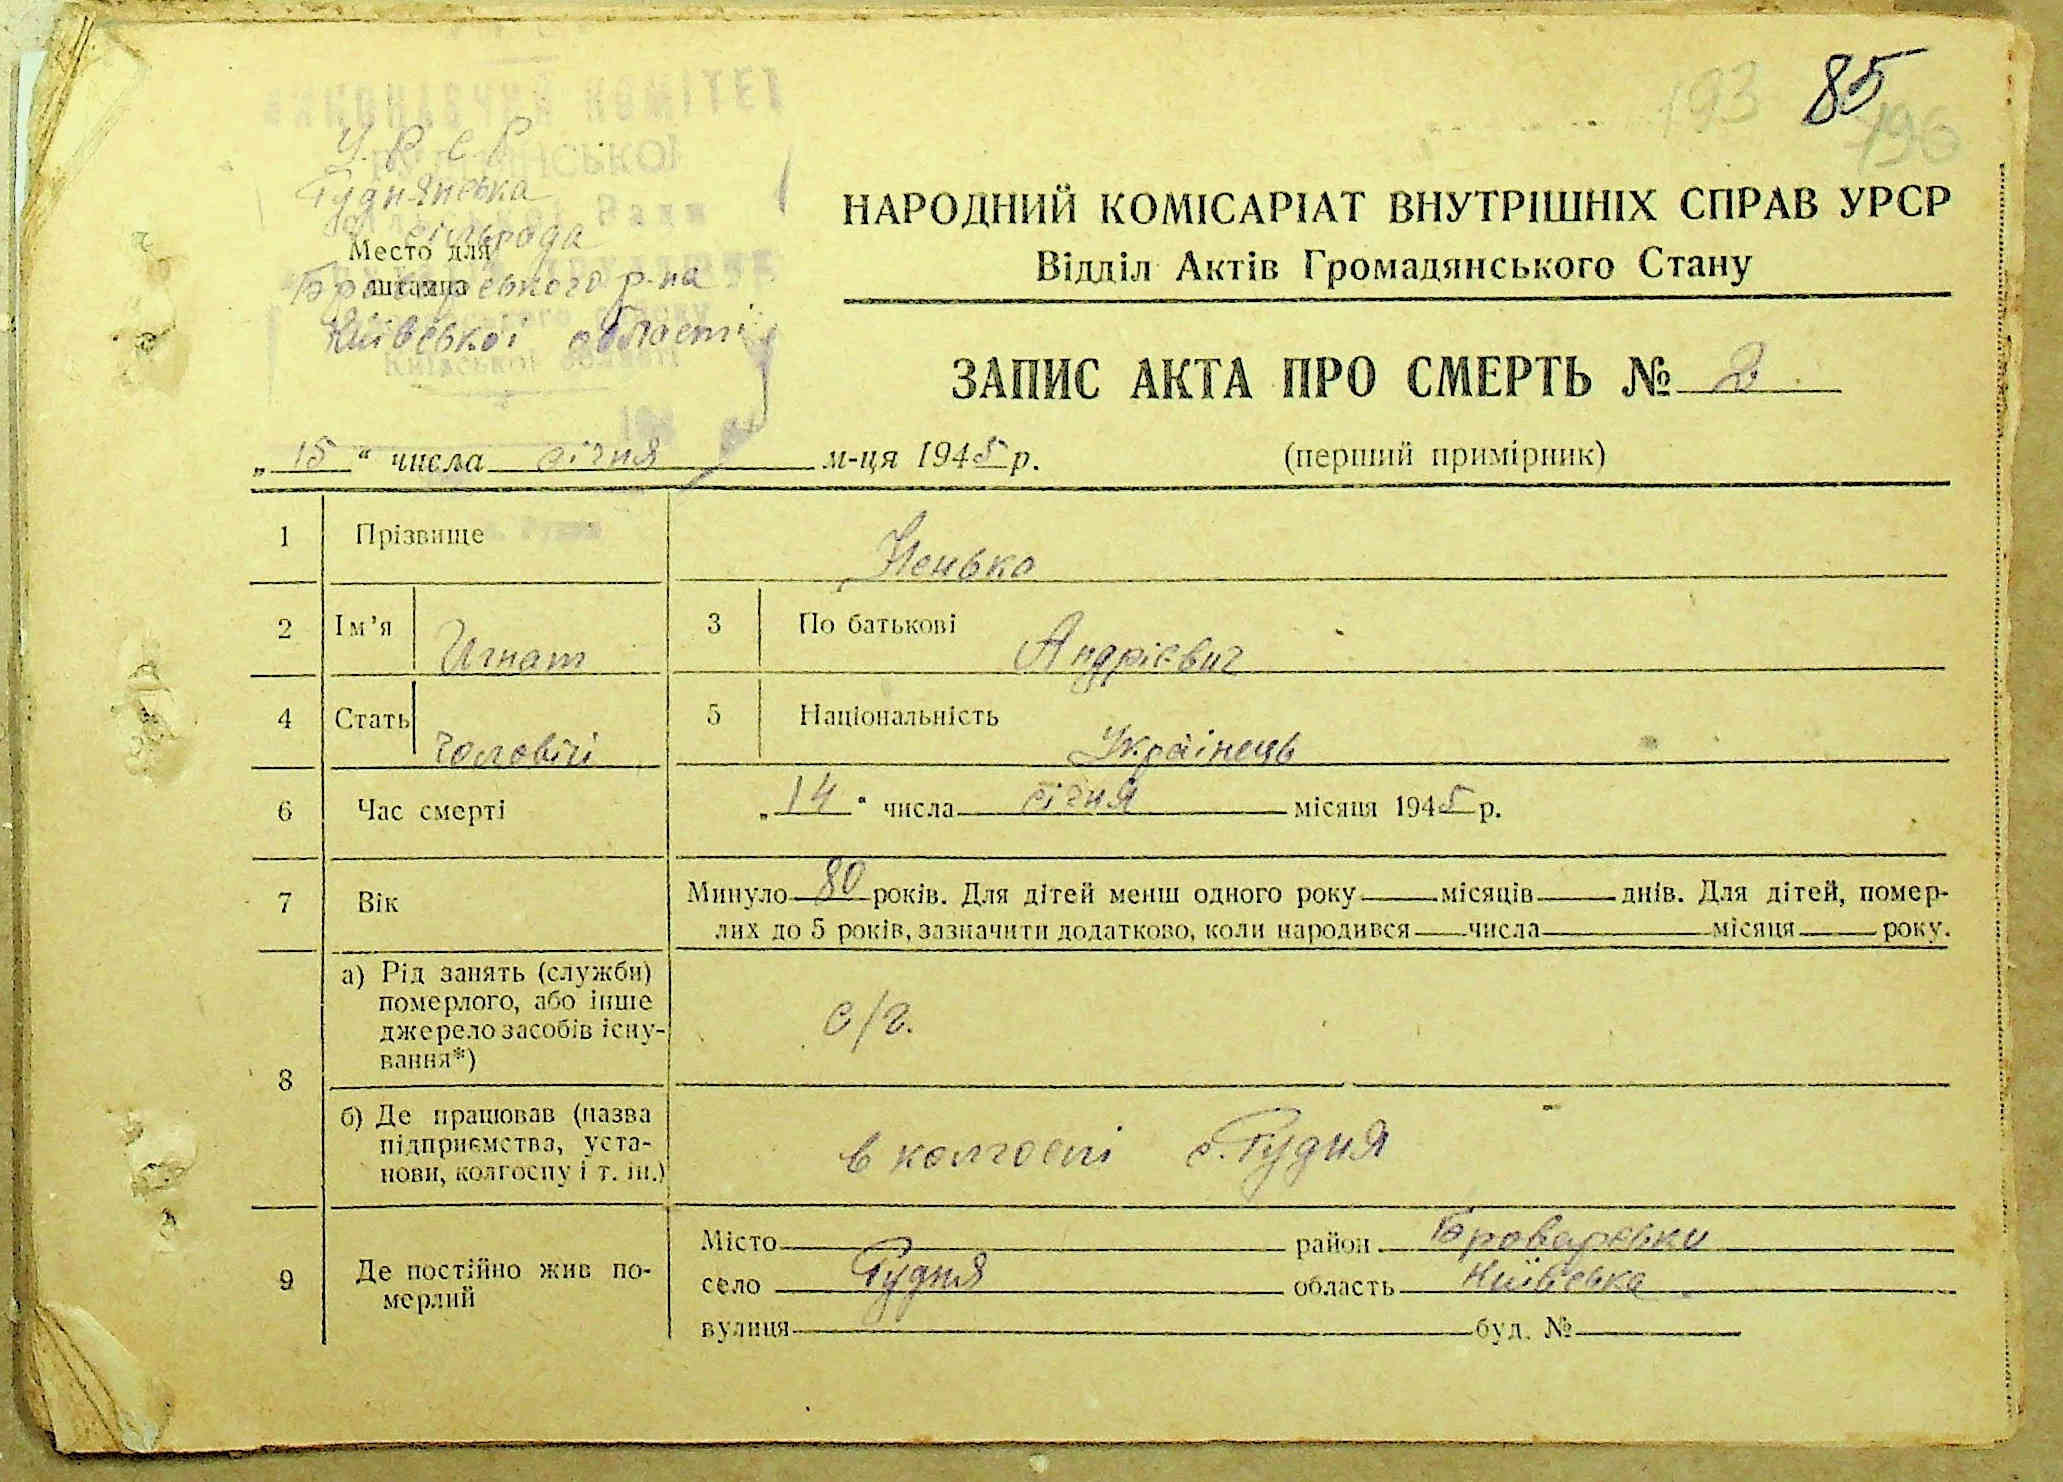 193 85
196
У.Р.С.Р
Руднянська
сільрада
Место для
штампа
Броварського р-на
Київської області
НАРОДНИЙ КОМІСАРІАТ ВНУТРІШНІХ СПРАВ УРСР
Відділ Актів Громадянського Стану
ЗАПИС АКТА ПРО СМЕРТЬ № 2
„15“ числа січня м-ця 1945 р. (перший примірник)
1 Прізвище Ненько
2 Ім’я Игнат 3 По батькові Андрієвич
4 Стать чоловічі 5 Національність Українець
6 Час смерті „14“ числа січня місяця 1945 р.
7 Вік Минуло 80 років. Для дітей менш одного року місяців днів. Для дітей, помер-
лих до 5 років, зазначити додатково, коли народився числа місяця року.
8 а) Рід занять (служби)
померлого, або інше
джерело засобів існу-
вання*) с/г.
б) Де працював (назва
підприємства, уста-
нови, колгоспу і т. ін.) в колгоспі с. Рудня
9 Де постійно жив по-
мерлий
Місто район Броварськи
село Рудня область Київська
вулиця буд. №